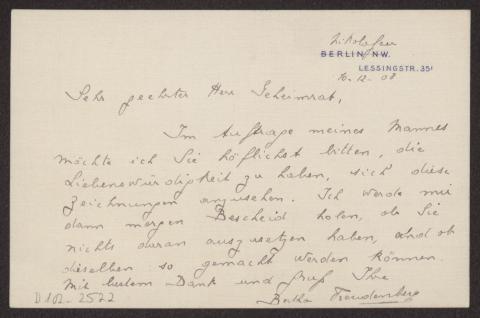 Nikolassee
BERLIN NW.
LESSINGSTR. 35I
10.12.08
Sehr geehrter Herr Geheimrat,
Im Auftrage meines Mannes
möchte ich Sie höflichst bitten, die
Liebenswürdigkeit zu haben, sich diese
Zeichnungen anzusehen. Ich werde mir
dann morgen Bescheid holen, ob Sie
nichts daran auszusetzen haben, und ob
dieselben so gemacht werden können.
Mit bestem Dank und Gruß Ihre
Bertha Freudenberg
D 102-2522